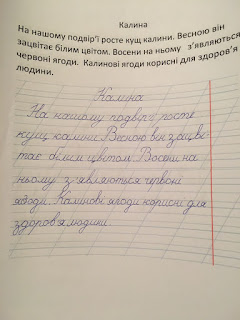 Калина
На нашому подвір'ї росте кущ калини. Весною він
зацвітає білим цвітом. Восени на ньому з'являються
червоні ягоди. Калинові ягоди корисні для здоров'я
людини.
Калина
На нашому подвір'ї росте
кущ калини. Весною він зацві
тає білим цвітом. Восени на
ньому з'являються червоні
ягоди. Калинові ягоди корисні для
здоров'я людини.